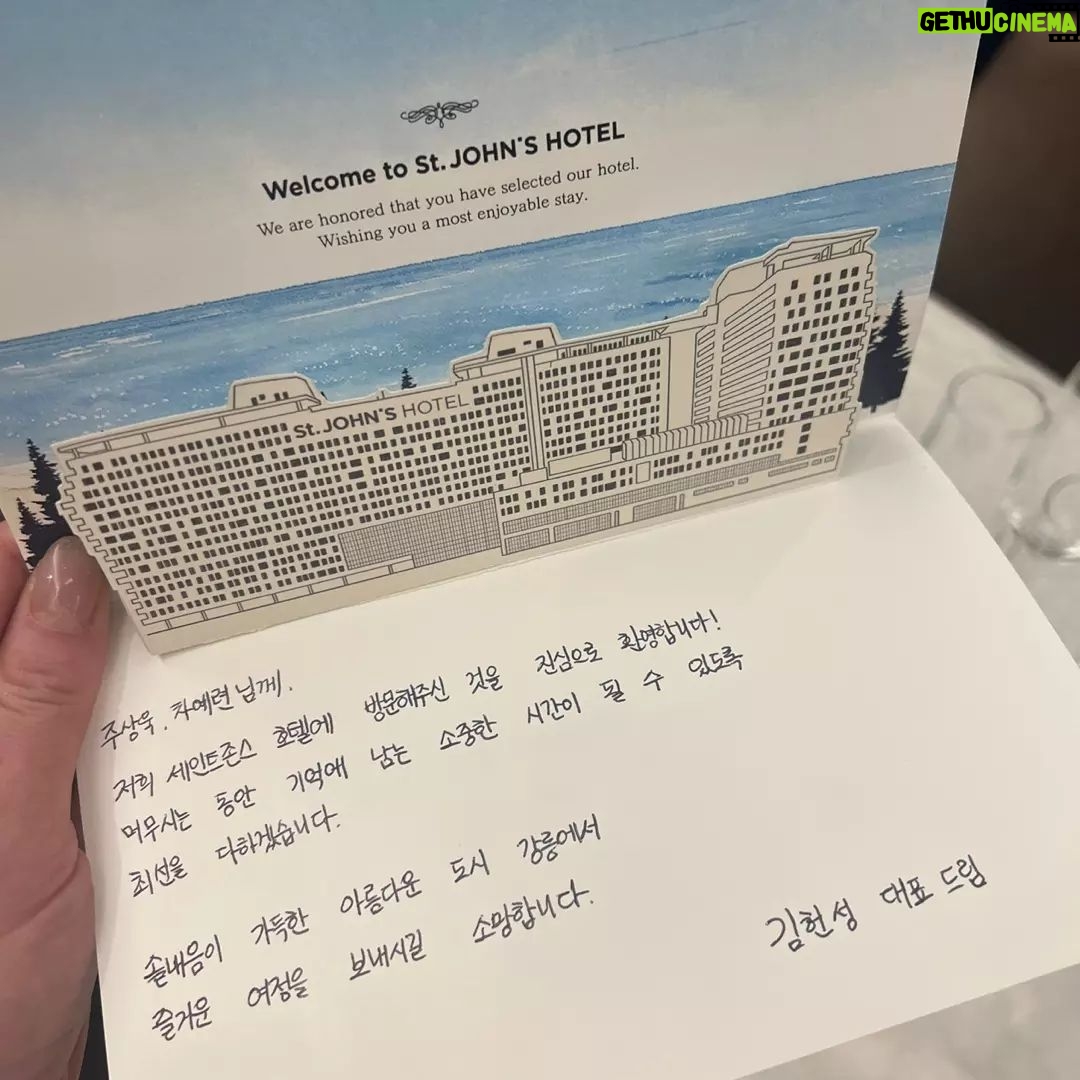 GETHUCINEMA
Welcome to St. JOHN'S HOTEL
We are honored that you have selected our hotel.
Wishing you a most enjoyable stay.
St. JOHN'S HOTEL
주상욱, 차예련 님께.
저희 세인트존스 호텔에 방문해주신 것을 진심으로 환영합니다!
머무시는 동안 기억에 남는 소중한 시간이 될 수 있도록
최선을 다하겠습니다.
솔내음이 가득한 아름다운 도시 강릉에서
즐거운 여정을 보내시길 소망합니다.
김헌성 대표 드림